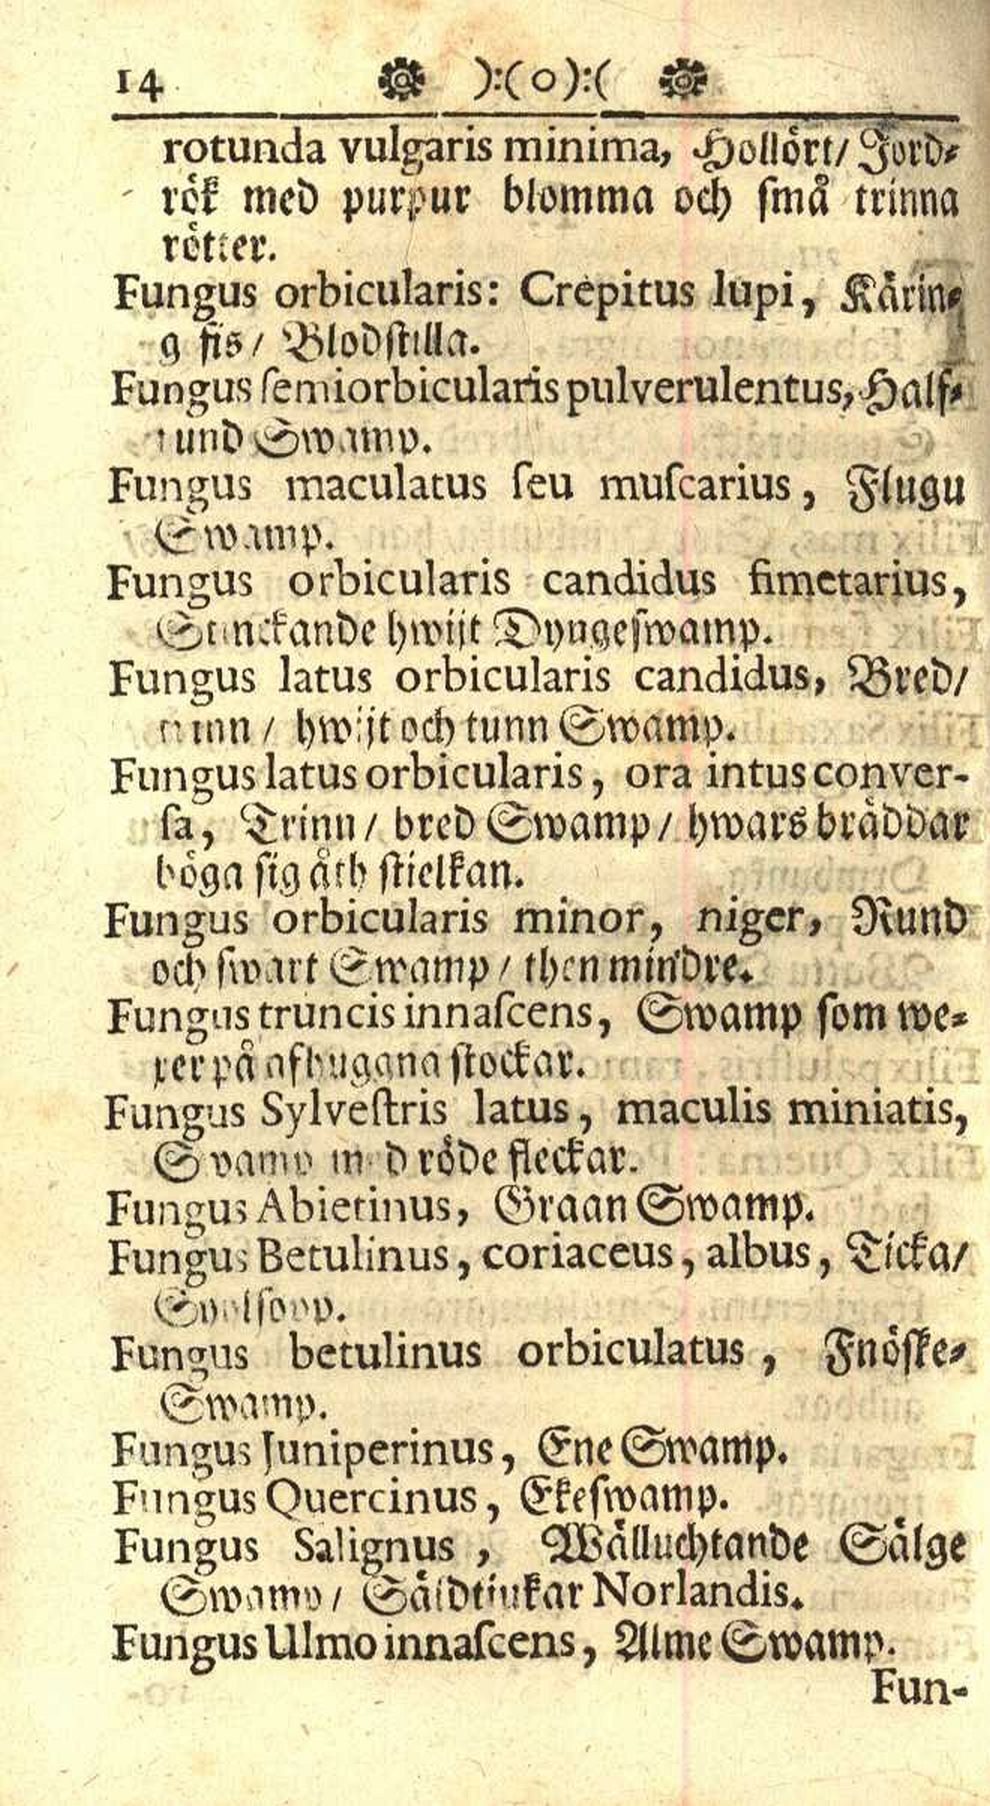 14 ):( o ):(
rotunda vulgaris minima, Hollört/ Jord⸗
rök med purpur blomma och små trinna
rötter.
Fungus orbicularis: Crepitus lupi, Kärin⸗
g fis/ Blodstilla.
Fungus ſemiorbicularis pulverulentus, Half⸗
rund Swamp.
Fungus maculatus ſeu muſcarius, Flugu
Swamp.
Fungus orbicularis candidus fimetarius,
Stinckande hwijt Dyngeſwamp.
Fungus latus orbicularis candidus, Bred/
trinn/ hwijt och tunn Swamp.
Fungus latus orbicularis, ora intus conver-
ſa, Trinn/ bred Swamp/ hwars bräddar
böga ſig åth ſtielkan.
Fungus orbicularis minor, niger, Rund
och ſwart Swamp/ then mindre.
Fungus truncis innaſcens, Swamp ſom we⸗
xer på afhuggna ſtockar.
Fungus Sylveſtris latus, maculis miniatis,
Swamp med röde fleckar.
Fungus Abietinus, Graan Swamp.
Fungus Betulinus, coriaceus, albus, Ticka/

Fungus betulinus orbiculatus, Fnöſke⸗
Swamp.
Fungus Juniperinus, Ene Swamp.
Fungus Quercinus, Ekeſwamp.
Fungus Salignus, Wälluchtande Sälge
Swamp/ Säldtiukar Norlandis.
Fungus Ulmo innaſcens, Alme Swamp.
Fun-